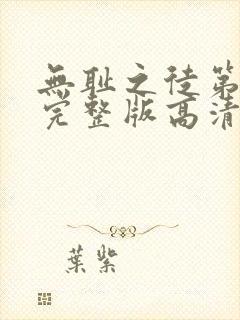 無耻之徒第
完整版高清
葉紫